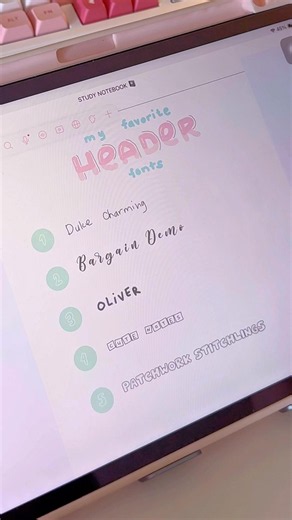 STUDY NOTEBOOK
my favorite
HEADER
fonts
1 Duke Charming
2 Bargain Demo
3 OLIVER
4
5 PATCHWORK STITCHLINGS